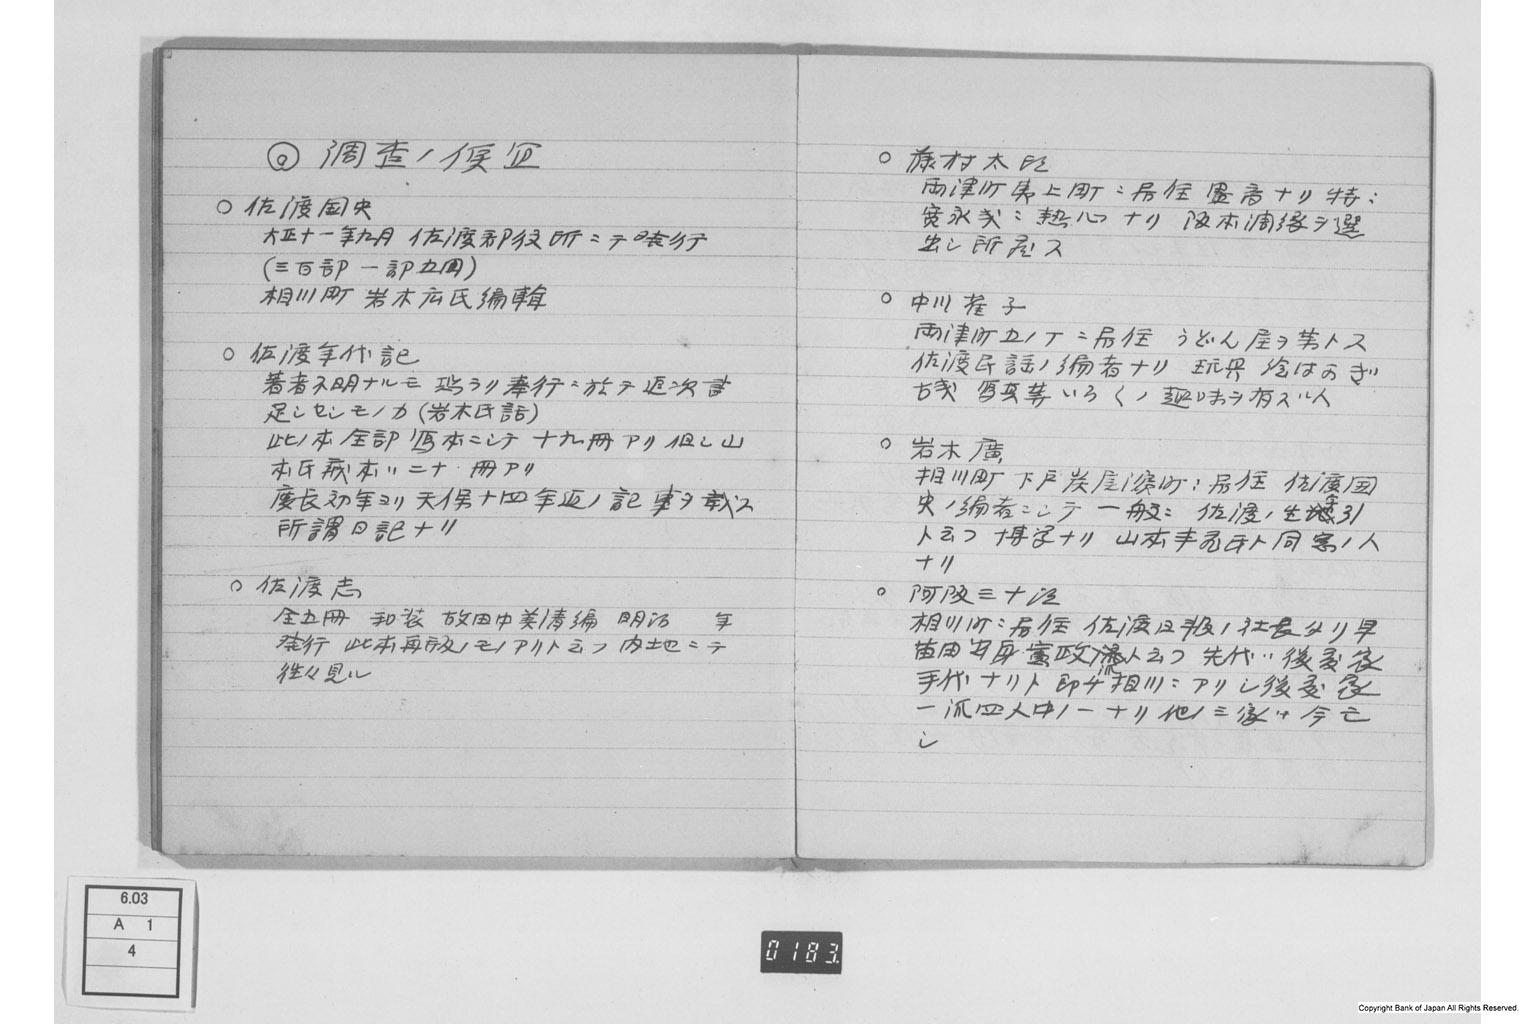 ◎ 調査ノ候豆
○ 佐渡国史
大正十一年九月 佐渡郡役所ニテ発行
(三百部 一部五円)
相川町 岩木広氏編輯
○ 佐渡年代記
著者不明ナルモ 恐ラク奉行ニ於テ逐次書
足シセシモノカ(岩木氏話)
此ノ本全部写本ニシテ 十九冊アリ 但し山
本氏蔵本ハ二十 冊アリ
慶長初年ヨリ天保十四年迄ノ記事ヲ載ス
所謂日記ナリ
○ 佐渡志
全五冊 和装 故田中美清編 明治 年
発行 此本再版ノモノアリト云フ 内地ニテ
往々見ル
○ 藤村太郎
両津町夷上町ニ居住 ナリ 特ニ
寛永銭ニ熱心ナリ ヲ選
出し所蔵ス
○ 中川雀子
両津町五ノ丁ニ居住 うどん屋ヲ業トス
佐渡民謡ノ編者ナリ 玩具 絵はがき
古銭 写真等いろくノ趣味ヲ有スル人
○ 岩木廣
相川町下戸炭屋濱町ニ居住 佐渡国
史ノ編者ニシテ 一般ニ 佐渡ノ生字引
ト云フ 博学ナリ 山本半蔵氏ト同窓ノ人
ナリ
○ 阿波三十治
相川町ニ居住 佐渡日報ノ社長タリ 早
稲田出身 憲政派ト云フ 先代ハ後藤家
手代ナリト 即チ相川ニアリし後藤家
一派四人中ノ一ナリ 他ノ三家ハ今亡
し
6.03
A 1
4
0183
Copyright Bank of Japan All Rights Reserved.